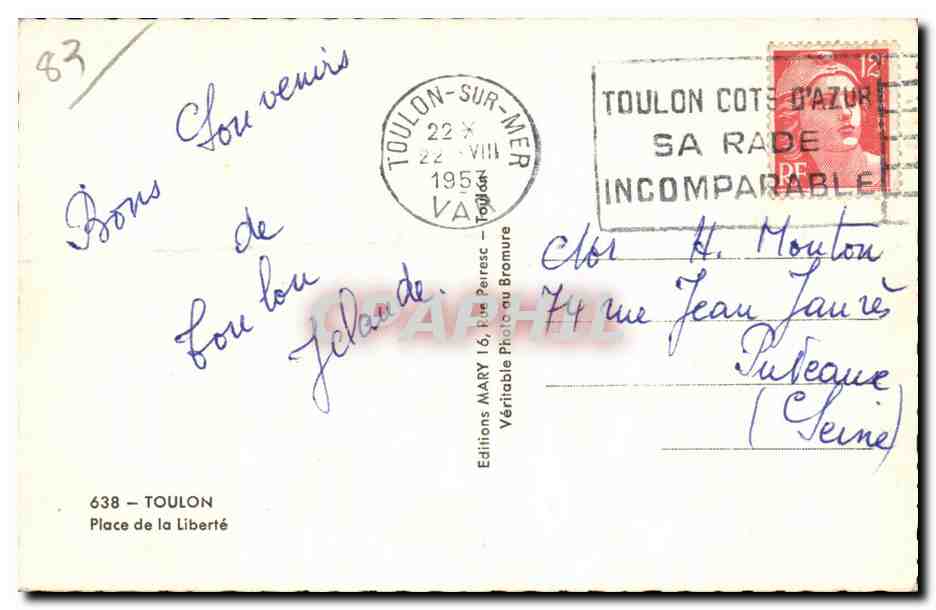 83
Bons Souvenirs
de
Toulon
Jclaude.
TOULON-SUR-MER
22 H
22 - VIII
1953
VAR
TOULON COTE D'AZUR
SA RADE
INCOMPARABLE
12F
RF
H. Mouton
74 rue Jean Jaurès
Puteaux
(Seine)
Editions MARY 16, Rue Peiresc - Toulon
Véritable Photo au Bromure
CPAPHIL
638 - TOULON
Place de la Liberté